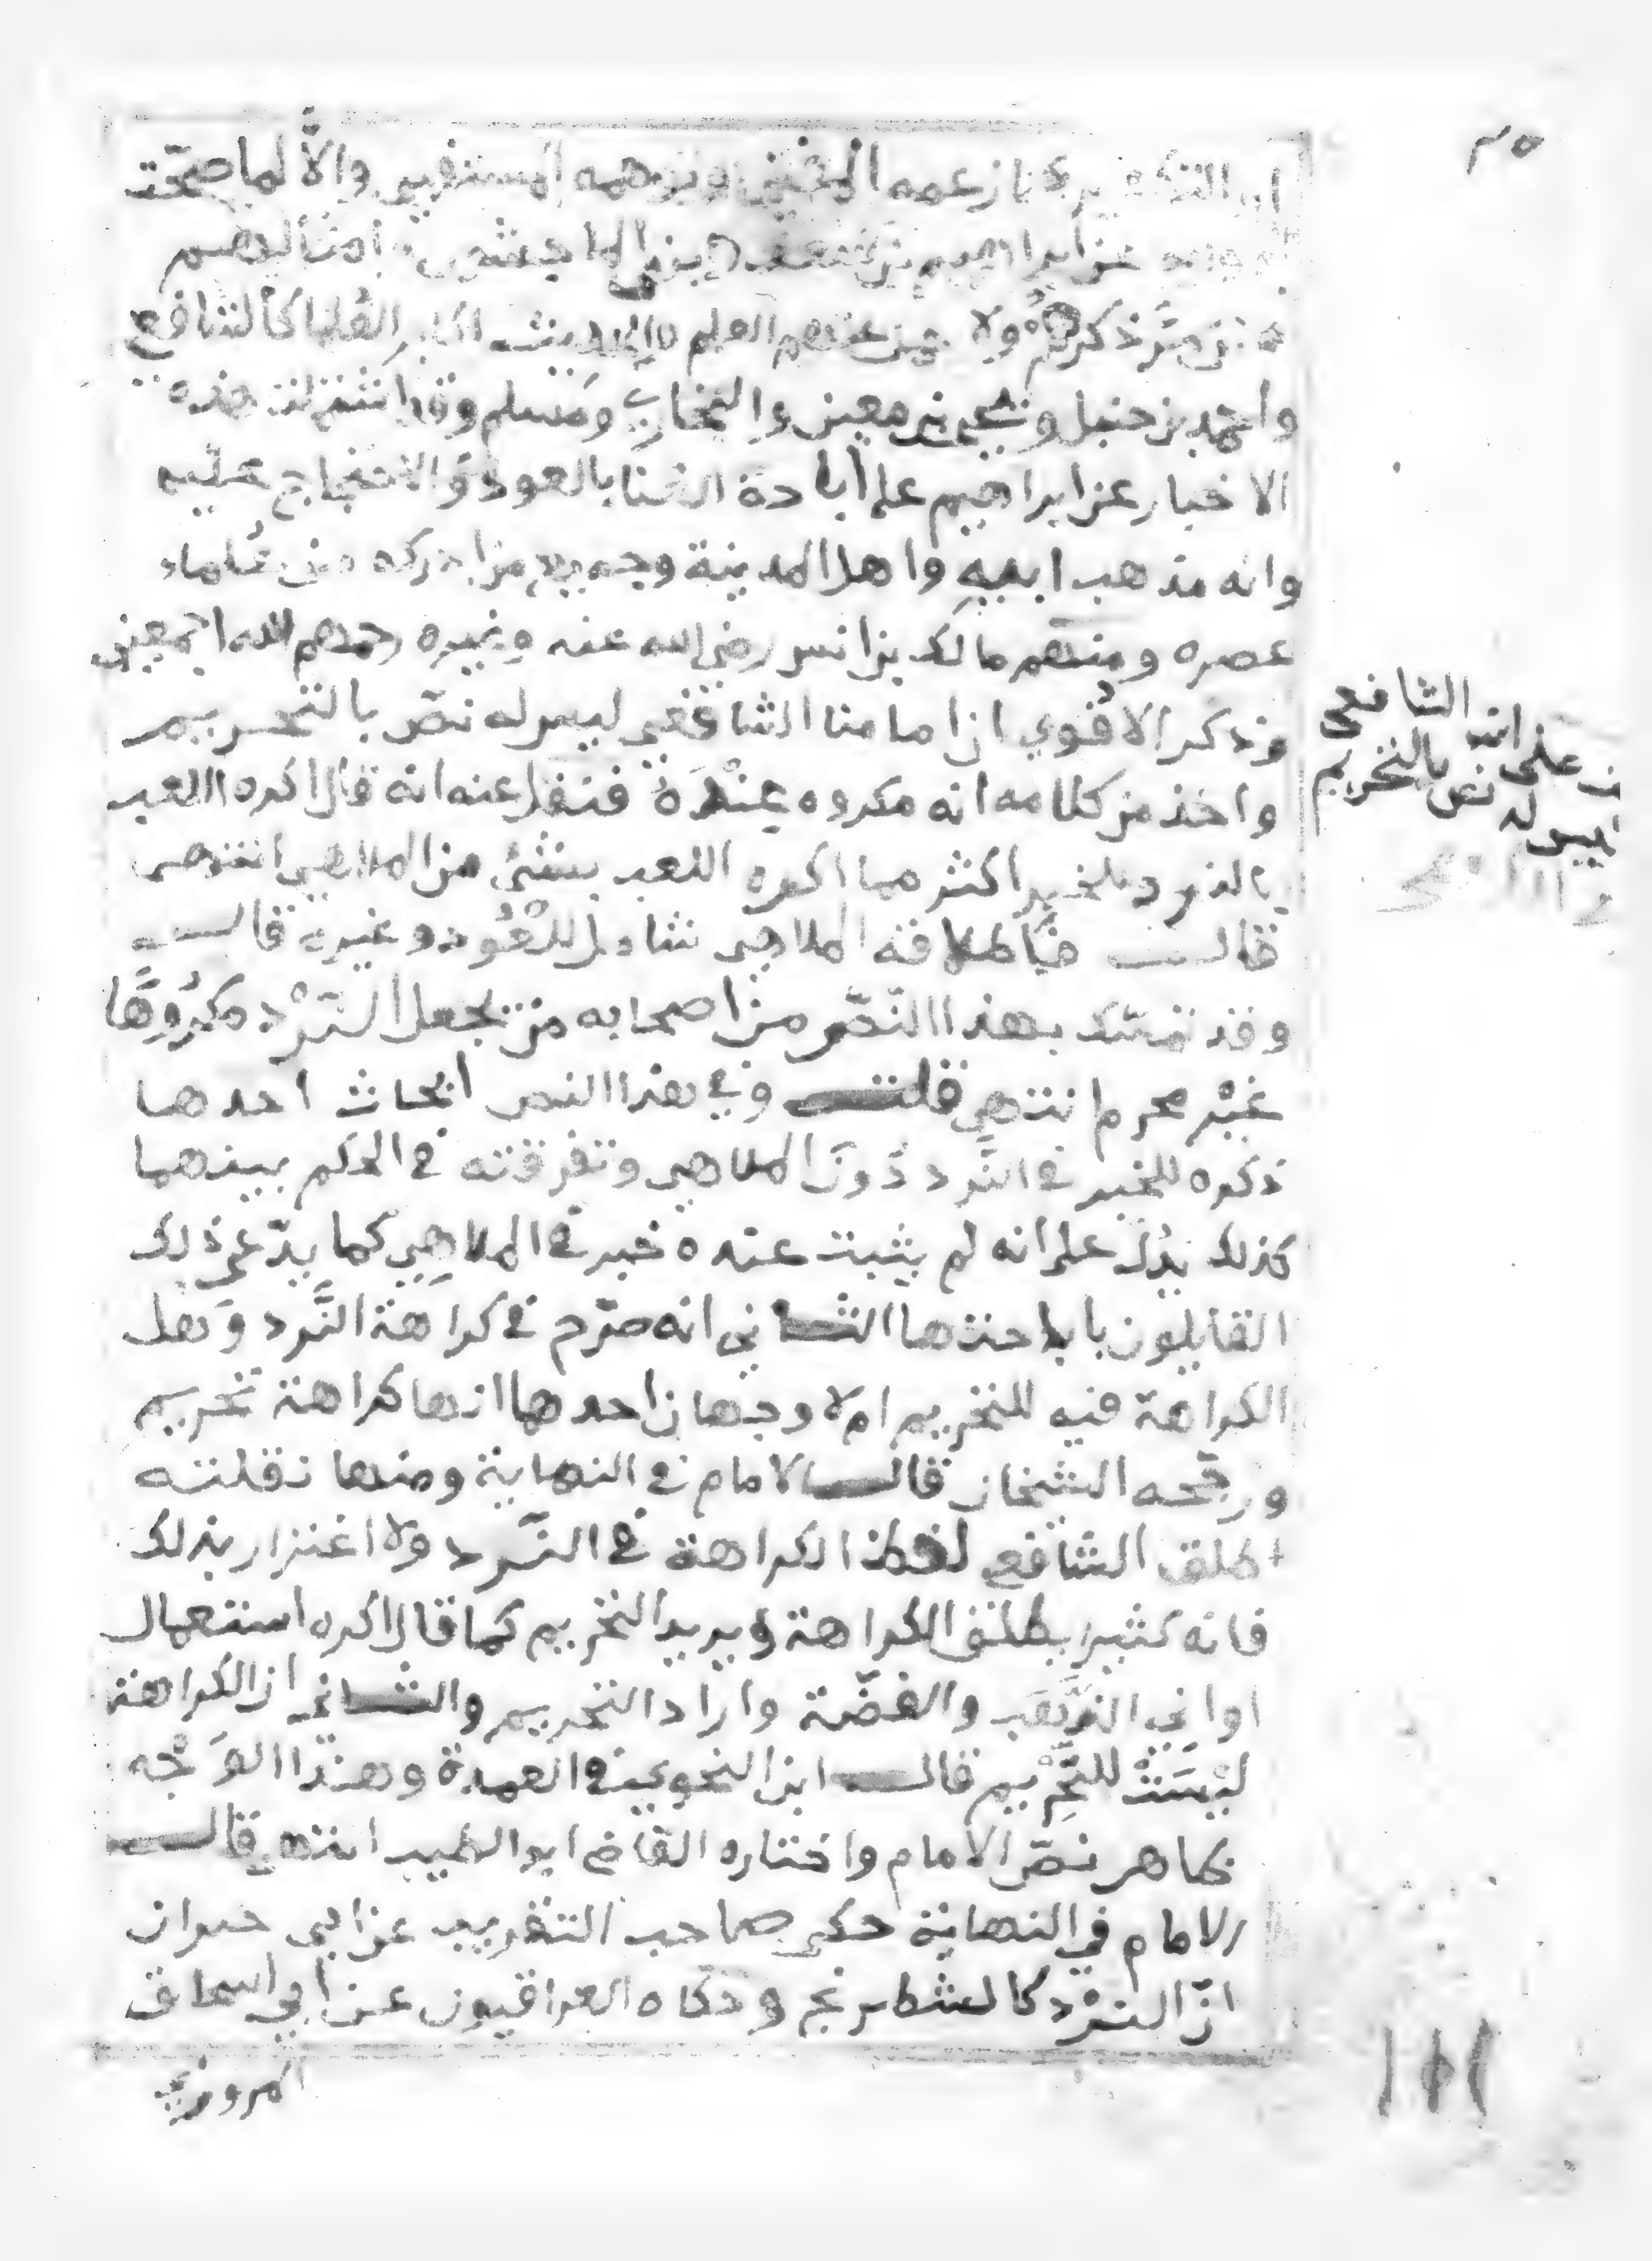 ٣٥
زعمه وتوهمه والا لما صحت
عن ابراهيم بن امثالهم
من مر ذكرهم ولا العلم بالحديث اكابر العلما كالشافعي
واحمد بن حنبل ويحيى بن معين والبخاري ومسلم وقد اشتملت هذه
الاخبار عن ابراهيم على اباحة الغنا بالعود والاحتجاج عليه
وانه مذهب ابيه واهل المدينة وجميع من ادركه من علماء
عصره ومنهم مالك بن انس رضي الله عنه وغيره رحمهم الله اجمعين
وذكر الادفوي ان امامنا الشافعي ليس له نص بالتحريم
واخذ من كلامه انه مكروه عنده فنقل عنه انه قال اكره اللعب
بالنرد للخبر اكثر مما اكره اللعب بشئ من الملاهي انتهى
قال فاطلاقه الملاهي شامل للعود وغيره قال
وقد تمسك بهذا النص من اصحابه من يجعل النرد مكروها
غير محرم انتهى قلت وفي هذا النص ابحاث احدها
ذكره للخبر في النرد دون الملاهي وتفرقته في الحكم بينهما
كذلك يدل على انه لم يثبت عنده خبر في الملاهي كما يدعي ذلك
القايلون باباحتها الثاني انه صرح في كراهة النرد وهل
الكراهة فيه للتحريم ام لا وجهان احدهما انها كراهة تحريم
ورجحه الشيخان قال الامام في النهاية ومنها نقلته
اطلق الشافعي لفظ الكراهة في النرد ولا اغترار بذلك
فانه كثيرا يطلق الكراهة ويريد التحريم كما قال اكره استعمال
اواني الذهب والفضة واراد التحريم والثاني ان الكراهة
ليست للتحريم قال ابن النحوي في العمدة وهذا الوجه
ظاهر نص الامام واختاره القاضي ابو الطيب انتهى قال
الامام في النهاية حكى صاحب التقريب عن ابي خيران
ان النرد كالشطرنج وحكاه العراقيون عن ابي اسحاق
المروزي
على ان الشافعي
ليس له نص بالتحريم